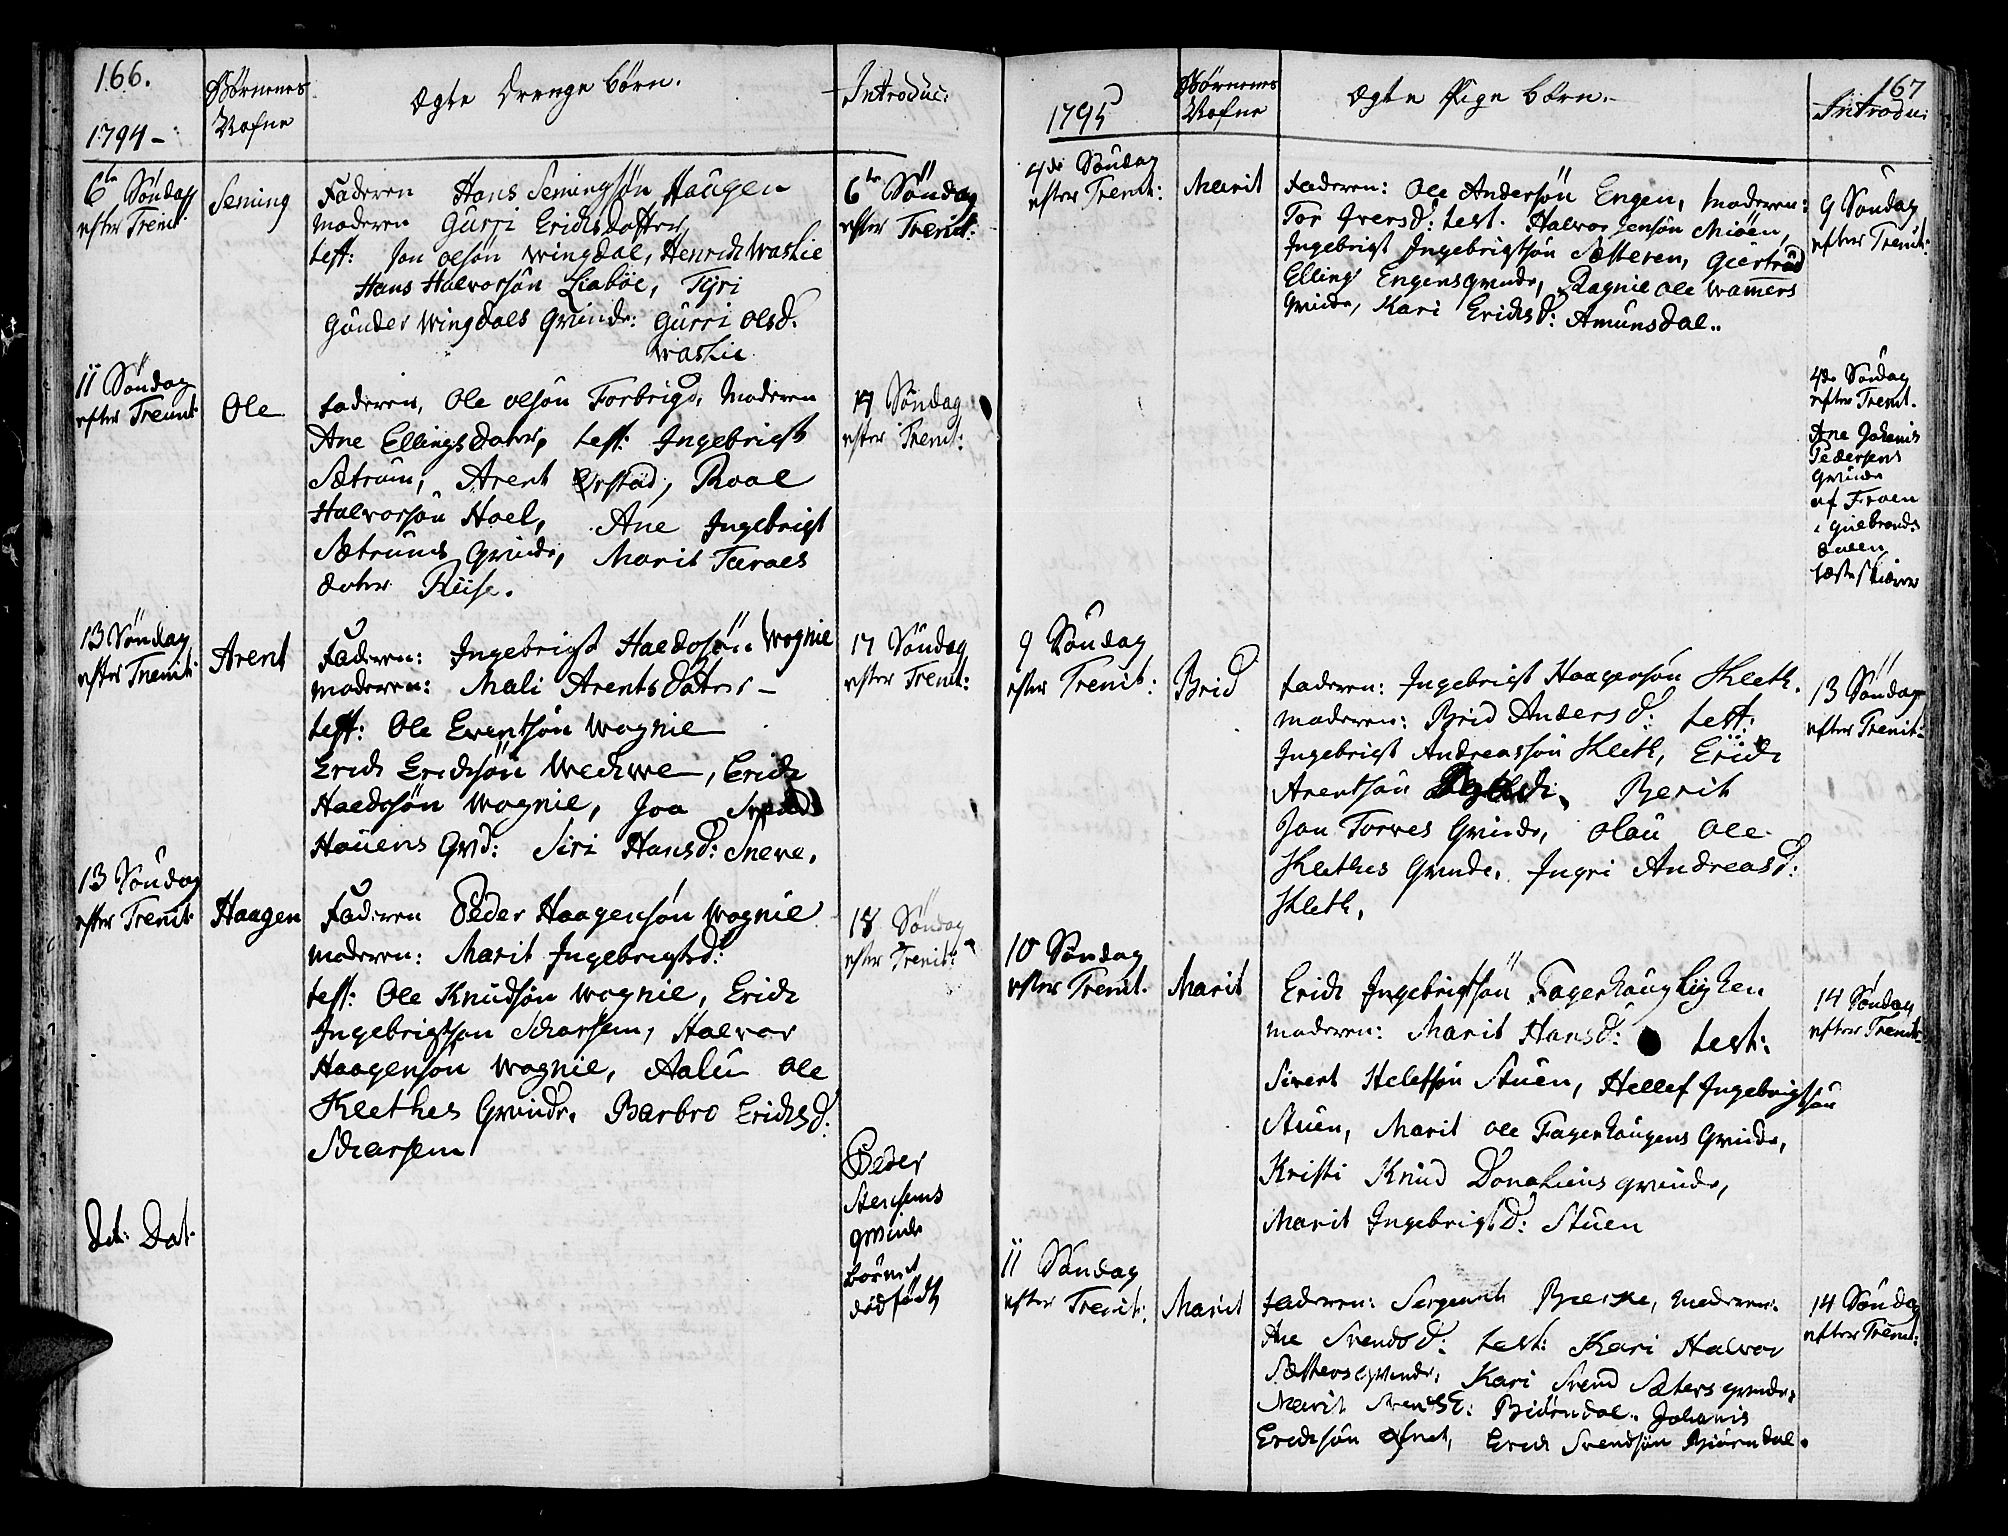 166.
1794 -
Børnenes
Nafne
Ægte Drenge børn.
Introduc:
6te Søndag
efter Trenit
Seming
Faderen Hans Semingsøn Haugen
moderen Gurri Erichsdatter
test: Jon olsøn Wingdal, Henrich Waslie
Hans Halvorsøn Liaböe, Tyri
Gunder Wingdals Qvinde: Gurri olsd.
Waslie
6te Søndag
efter Trenit:
11 Søndag
efter Trenit:
Ole
faderen, Ole olsøn Forbrigd, Moderen
Ane Ellingsdatter, test: Ingebrigt
Sætrum, Arent Ørstad, Roal
Halvorsøn Hoel, Ane Ingebrigt
Sætrums Qvinde, Marit Taraes
datter Riise.
17 Søndag
efter Trenit:
13 Søndag
efter Trenit:
Arent
Faderen: Ingebrigt Haldosøn Wognie
moderen: Mali Arentsdatter -
test: Ole Eventsøn Wognie
Erich Erichsøn Wechwe, Erich
Haldosøn Wognie, Joa
Hauens Qvd: Siri Hansd: Sneve.
17 Søndag
efter Trenit:
13 Søndag
efter Trenit:
Haagen
Faderen Peder Haagensøn Wognie
moderen: Marit Ingebrigtsd:
test: Ole Knudsøn Wognie, Erich
Ingebrigtsøn Scharsem, Halvor
Haagensøn Wognie, Aalu ole
Klethes Qvinde. Barbro Erichsd:
Scharsem
18 Søndag
efter Trenit:
Dit: Dat:
Peder
Stensems
qvinde
barnet
dødfødt
1795
Børnenes
Nafne
Ægte Pige børn.
167
Introdu:
4de Søndag
efter Trenit:
Marit
faderen: Ole Andersøn Engen, moderen:
Tor Iversd: test. Halvor Jensøn Miøen,
Ingebrigt Ingebrigtsøn Sætteren, Giertrud
Elling Engens qvinde, Ragnie ole Wamers
Qvinde, Kari Erichsd: Amunsdal..
9 Søndag
efter Trenit:
4de Søndag
efter Trenit.
Ane Johanis
Pedersens
Qvinde
af Froen
i Gulbrands
dalen
9 Søndag
efter Trenit:
Brid
faderen: Ingebrigt Haagensøn Kleth.
moderen: Brid Anders D: test:
Ingebrigt Andreassøn Kleth, Erich
Arentsøn Berit
Jon Torves Qvinde, olau ole
Klethes Qvinde. Ingri Andreasd:
Kleth.
13 Søndag
efter Trenit:
10 Søndag
efter Trenit.
Marit
Erich Ingebrigtsøn Fagerhauglighen
moderen: Marit Hansd: test:
Sivert Helefsøn Stuen, Hellef Ingebrigtsøn
Stuen, Marit ole Fagerhaugens Qvinde,
Kristi Knud Donaliens qvinde,
Marit Ingebrigtsd: Stuen
14 Søndag
efter Trenit:
11 Søndag
efter Trenit:
Marit
faderen: Sergeant Bierke, moderen:
Ane Svendsd: test: Kari Halvor
Sætters qvinde, Kari Svend Sæters qvinde,
Marit Svendsd: Biørndal.. Johanis
Erichsøn Øfnet, Erich Svendsøn Biørndal.
14 Søndag
efter Trenit: